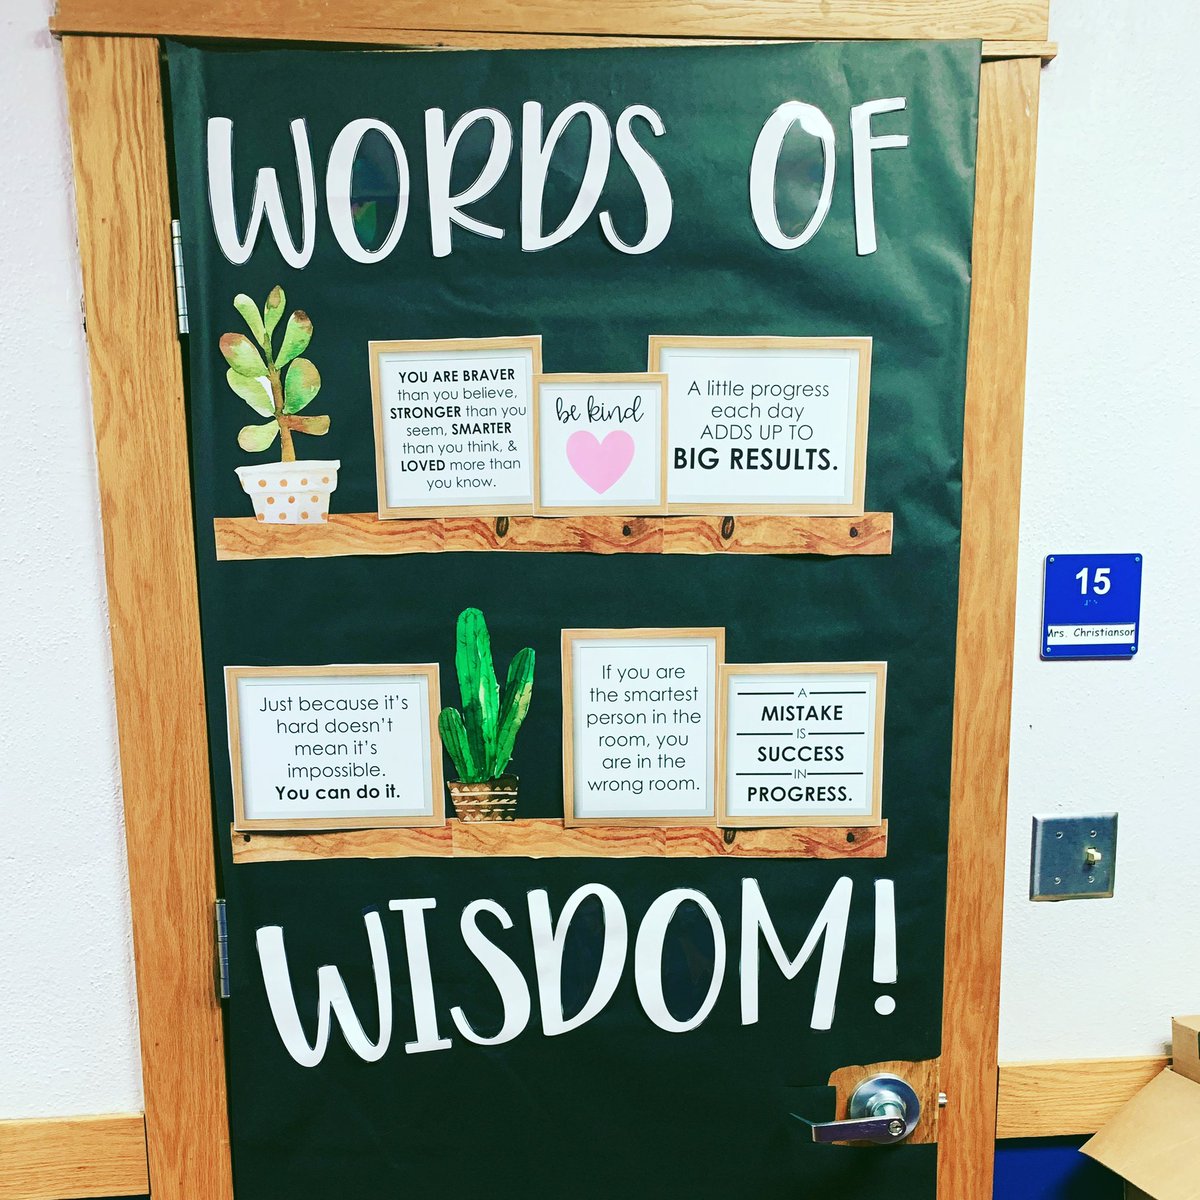 WORDS OF
YOU ARE BRAVER
than you believe,
STRONGER than you
seem, SMARTER
than you think, &
LOVED more than
you know.
be kind
A little progress
each day
ADDS UP TO
BIG RESULTS.
Just because it's
hard doesn't
mean it's
impossible.
You can do it.
If you are
the smartest
person in the
room, you
are in the
wrong room.
A
MISTAKE
IS
SUCCESS
IN
PROGRESS.
WISDOM!
15
Mrs. Christianson